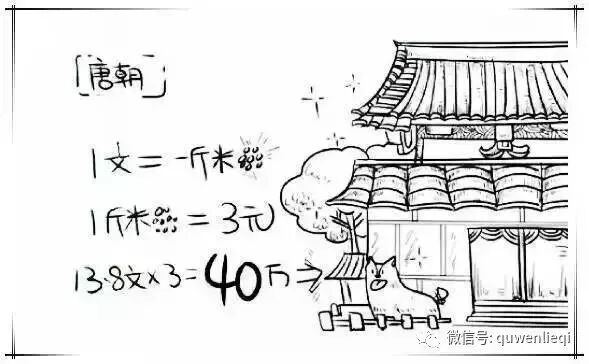 「唐朝」
1文=一斤米
1斤米=3元
13.8文×3=40万
微信号: quwenlieqi